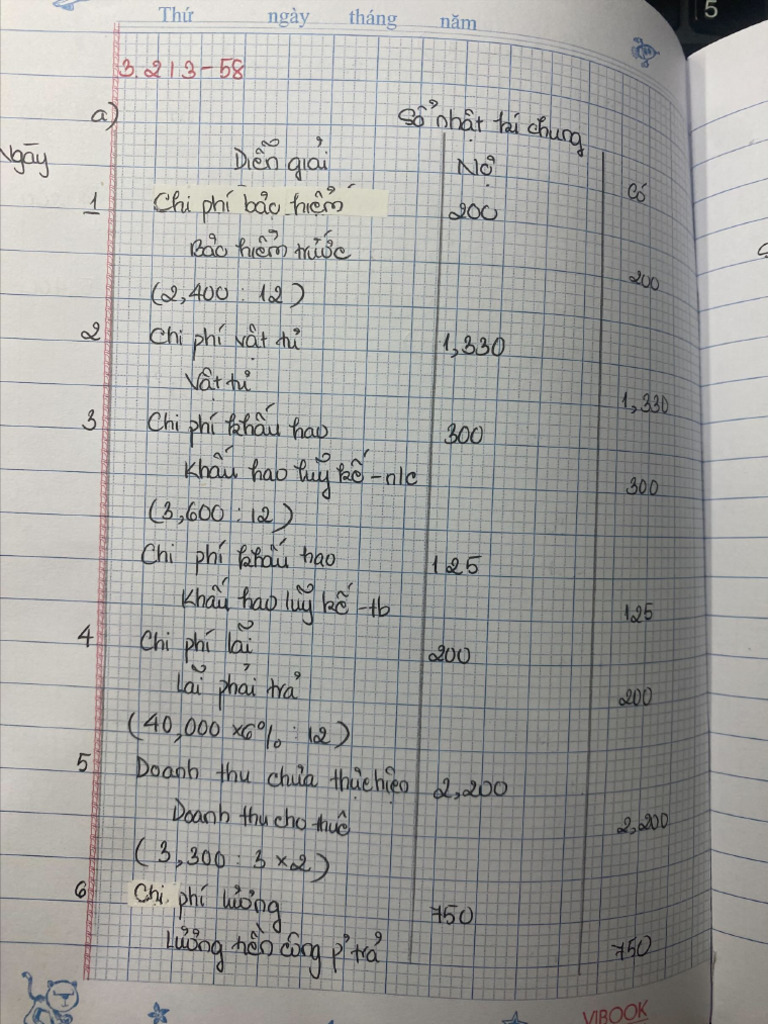 Thứ ngày tháng năm
5
3.213-58
a) Sổ nhật kí chung
Ngày Diễn giải Nợ Có
1 Chi phí bảo hiểm 200
Bảo hiểm trước 200
(2,400 : 12)
2 Chi phí vật tư 1,330
Vật tư 1,330
3 Chi phí khấu hao 300
Khấu hao luỹ kế -nlc 300
(3,600 : 12)
Chi phí khấu hao 125
Khấu hao luỹ kế -tb 125
4 Chi phí lãi 200
Lãi phải trả 200
(40,000 x6% : 12)
5 Doanh thu chưa thực hiện 2,200
Doanh thu cho thuê 2,200
(3,300 : 3 x 2)
6 Chi phí lương 750
Lương tiền công p' trả 750
VIBOOK